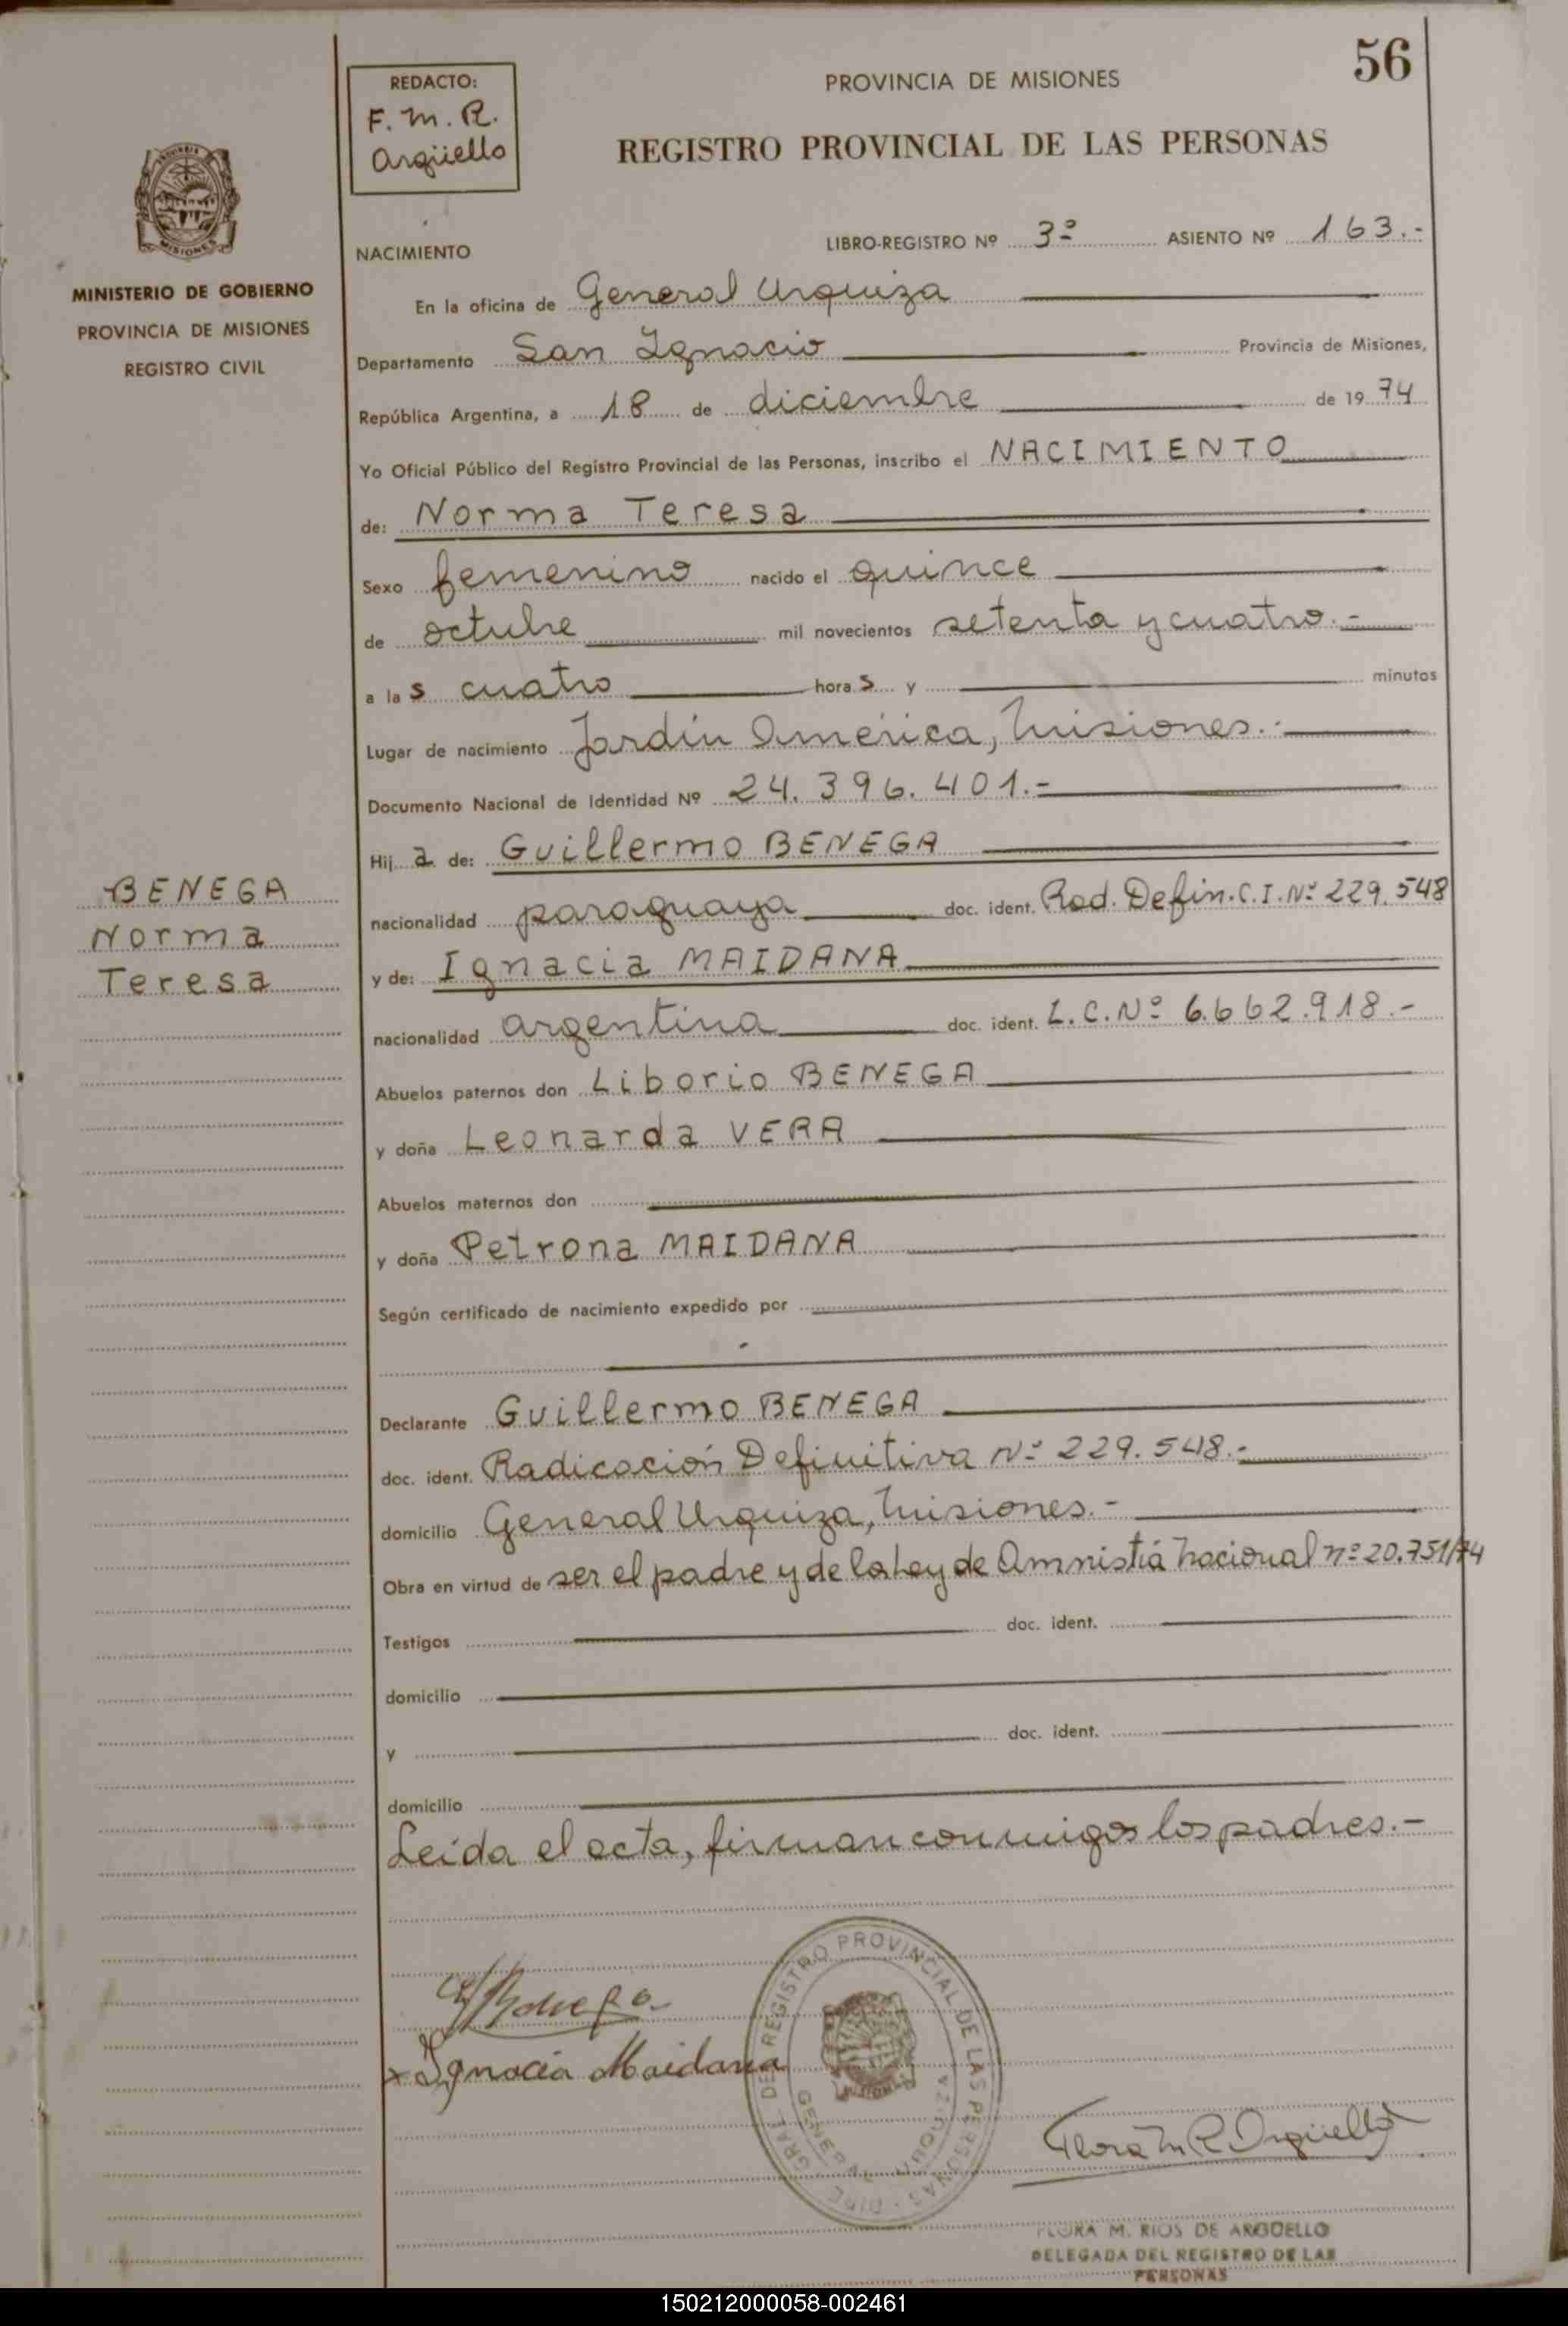 56
REDACTO:
F. M. R.
Argüello
PROVINCIA DE MISIONES
REGISTRO PROVINCIAL DE LAS PERSONAS
MISIONES
MINISTERIO DE GOBIERNO
PROVINCIA DE MISIONES
REGISTRO CIVIL
NACIMIENTO LIBRO-REGISTRO Nº 3º ASIENTO Nº 163.-
En la oficina de General Urquiza
Departamento San Ignacio Provincia de Misiones,
República Argentina, a 18 de diciembre de 1974
Yo Oficial Público del Registro Provincial de las Personas, inscribo el NACIMIENTO
de: Norma Teresa
Sexo femenino nacido el quince
de octubre mil novecientos setenta y cuatro.-
a las cuatro horas y minutos
Lugar de nacimiento Jardín América, Misiones.-
Documento Nacional de Identidad Nº 24.396.401.-
Hija de: Guillermo BENEGA
BENEGA
Norma
Teresa
nacionalidad paraguaya doc. ident. Rad. Defin. C.I. Nº 229.548
y de: Ignacia MAIDANA
nacionalidad argentina doc. ident. L.C. Nº 6.662.918.-
Abuelos paternos don Liborio BENEGA
y doña Leonarda VERA
Abuelos maternos don
y doña Petrona MAIDANA
Según certificado de nacimiento expedido por
Declarante Guillermo BENEGA
doc. ident. Radicación Definitiva Nº 229.548.-
domicilio General Urquiza, Misiones.-
Obra en virtud de ser el padre y de la Ley de Amnistía Nacional nº 20.751/74
Testigos doc. ident.
domicilio
y doc. ident.
domicilio
Leída el acta, firman conmigo los padres.-
Ignacia Maidana
DIRE. GRAL. DEL REGISTRO PROVINCIAL DE LAS PERSONAS
GENERAL URQUIZA
Flora M R Argüello
FLORA M. RIOS DE ARGÜELLO
DELEGADA DEL REGISTRO DE LAS
PERSONAS
150212000058-002461